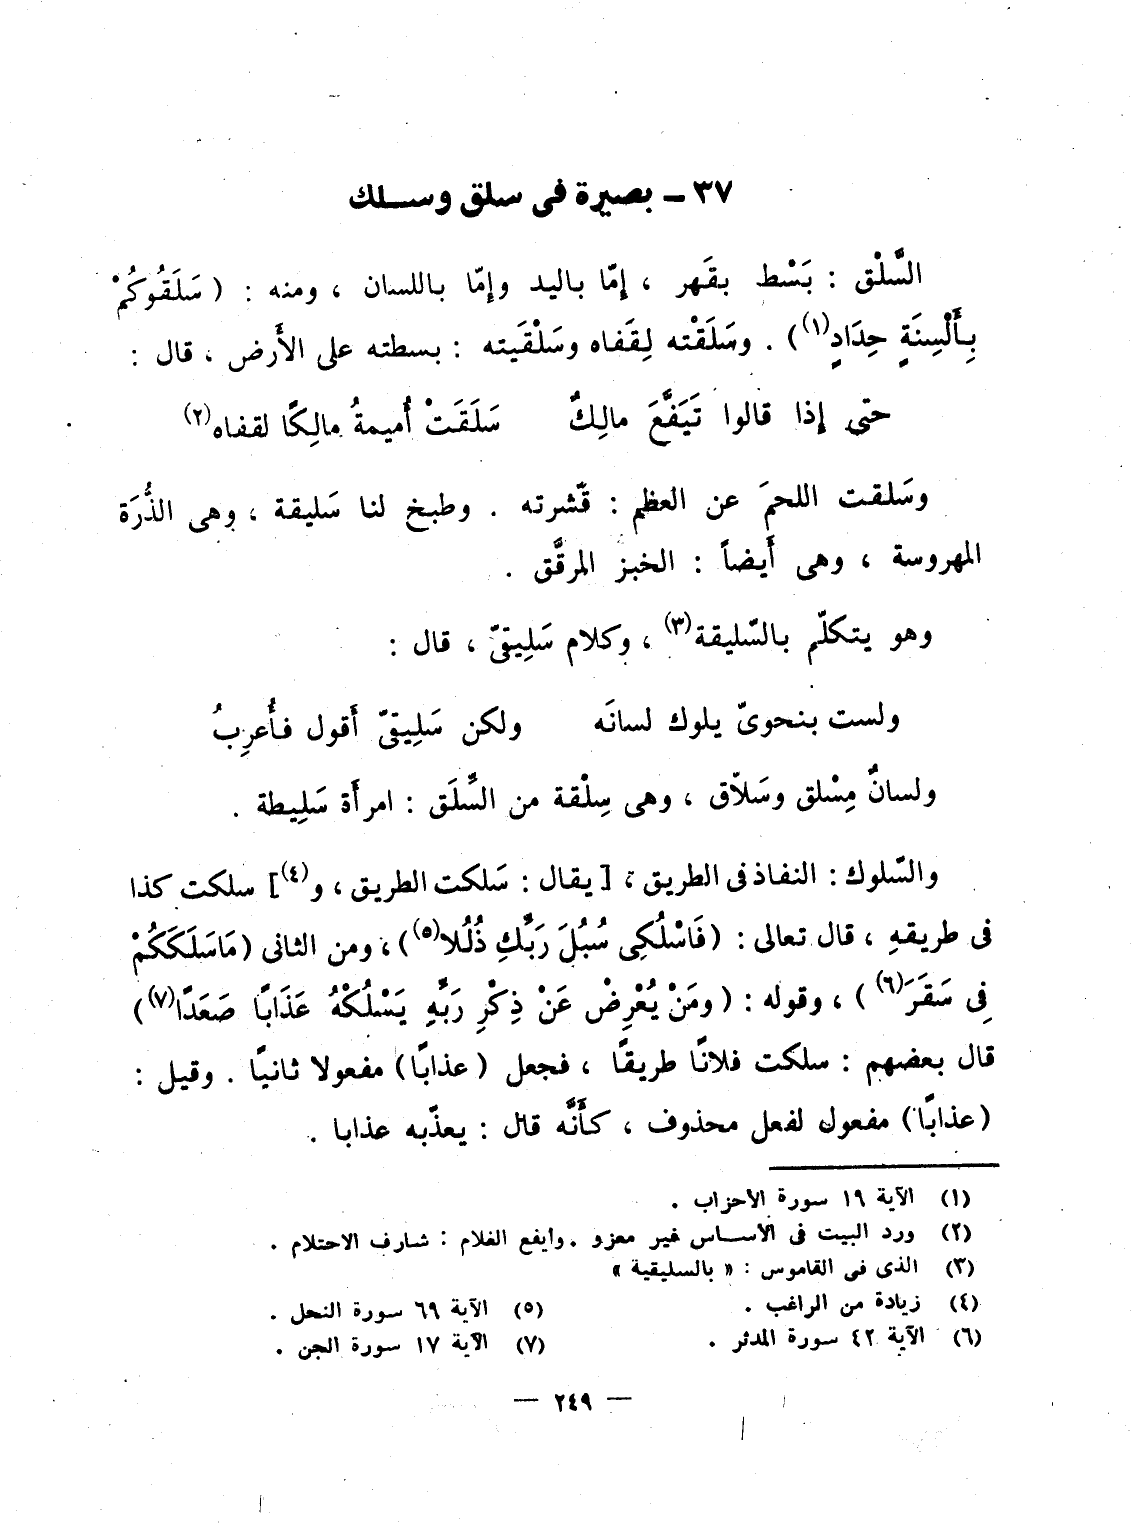 ٣٧ ـ بصيرة فى سلق وسـلك
السَّلْق : بَسْط بقَهر ، إمّا باليد وإمّا باللسان ، ومنه : ( سَلَقُوكُمْ
بِأَلْسِنَةٍ حِدَادٍ(١) ) . وسَلَقْته لِقَفاه وسَلْقَيته : بسطته على الأَرض ، قال :
حتى إذا قالوا تَيَفَّعَ مالِكٌ سَلَقَتْ أُميمةُ مالِكًا لقفاه(٢)
وسَلقت اللحمَ عن العظم : قَشّرته . وطبخ لنا سَليقة ، وهى الذُّرَة
المهروسة ، وهى أَيضاً : الخبز المرقَّق .
وهو يتكلّم بالسّليقة(٣) ، وكلام سَلِيقىّ ، قال :
ولست بنحوىّ يلوك لسانَه ولكن سَلِيقىّ أَقول فأُعرِبُ
ولسانٌ مِسْلق وسَلاّق ، وهى سِلْقة من السِّلَق : امرأَة سَلِيطة .
والسّلوك : النفاذ فى الطريق ، [ يقال : سَلكت الطريق ، و(٤) ] سلكت كذا
فى طريقهِ ، قال تعالى : (فَاسْلُكِى سُبُلَ رَبِّكِ ذُلُلا(٥)) ، ومن الثانى (مَاسَلَكَكُمْ
فِى سَقَرَ(٦) ) ، وقوله : ( ومَنْ يُعْرِضْ عَنْ ذِكْرِ رَبِّهِ يَسْلُكْهُ عَذَابًا صَعَدًا(٧) )
قال بعضهم : سلكت فلانًا طريقًا ، فجعل ( عذابًا ) مفعولا ثانيًا . وقيل :
(عذابًا) مفعول لفعل محذوف ، كأَنَّه قال : يعذّبه عذابا .
(١) الآية ١٩ سورة الأحزاب .
(٢) ورد البيت فى الأسـاس غير معزو . وأيفع الغلام : شارف الاحتلام .
(٣) الذى فى القاموس : « بالسليقية »
(٤) زيادة من الراغب . (٥) الآية ٦٩ سورة النحل .
(٦) الآية ٤٢ سورة المدثر . (٧) الآية ١٧ سورة الجن .
— ٢٤٩ —